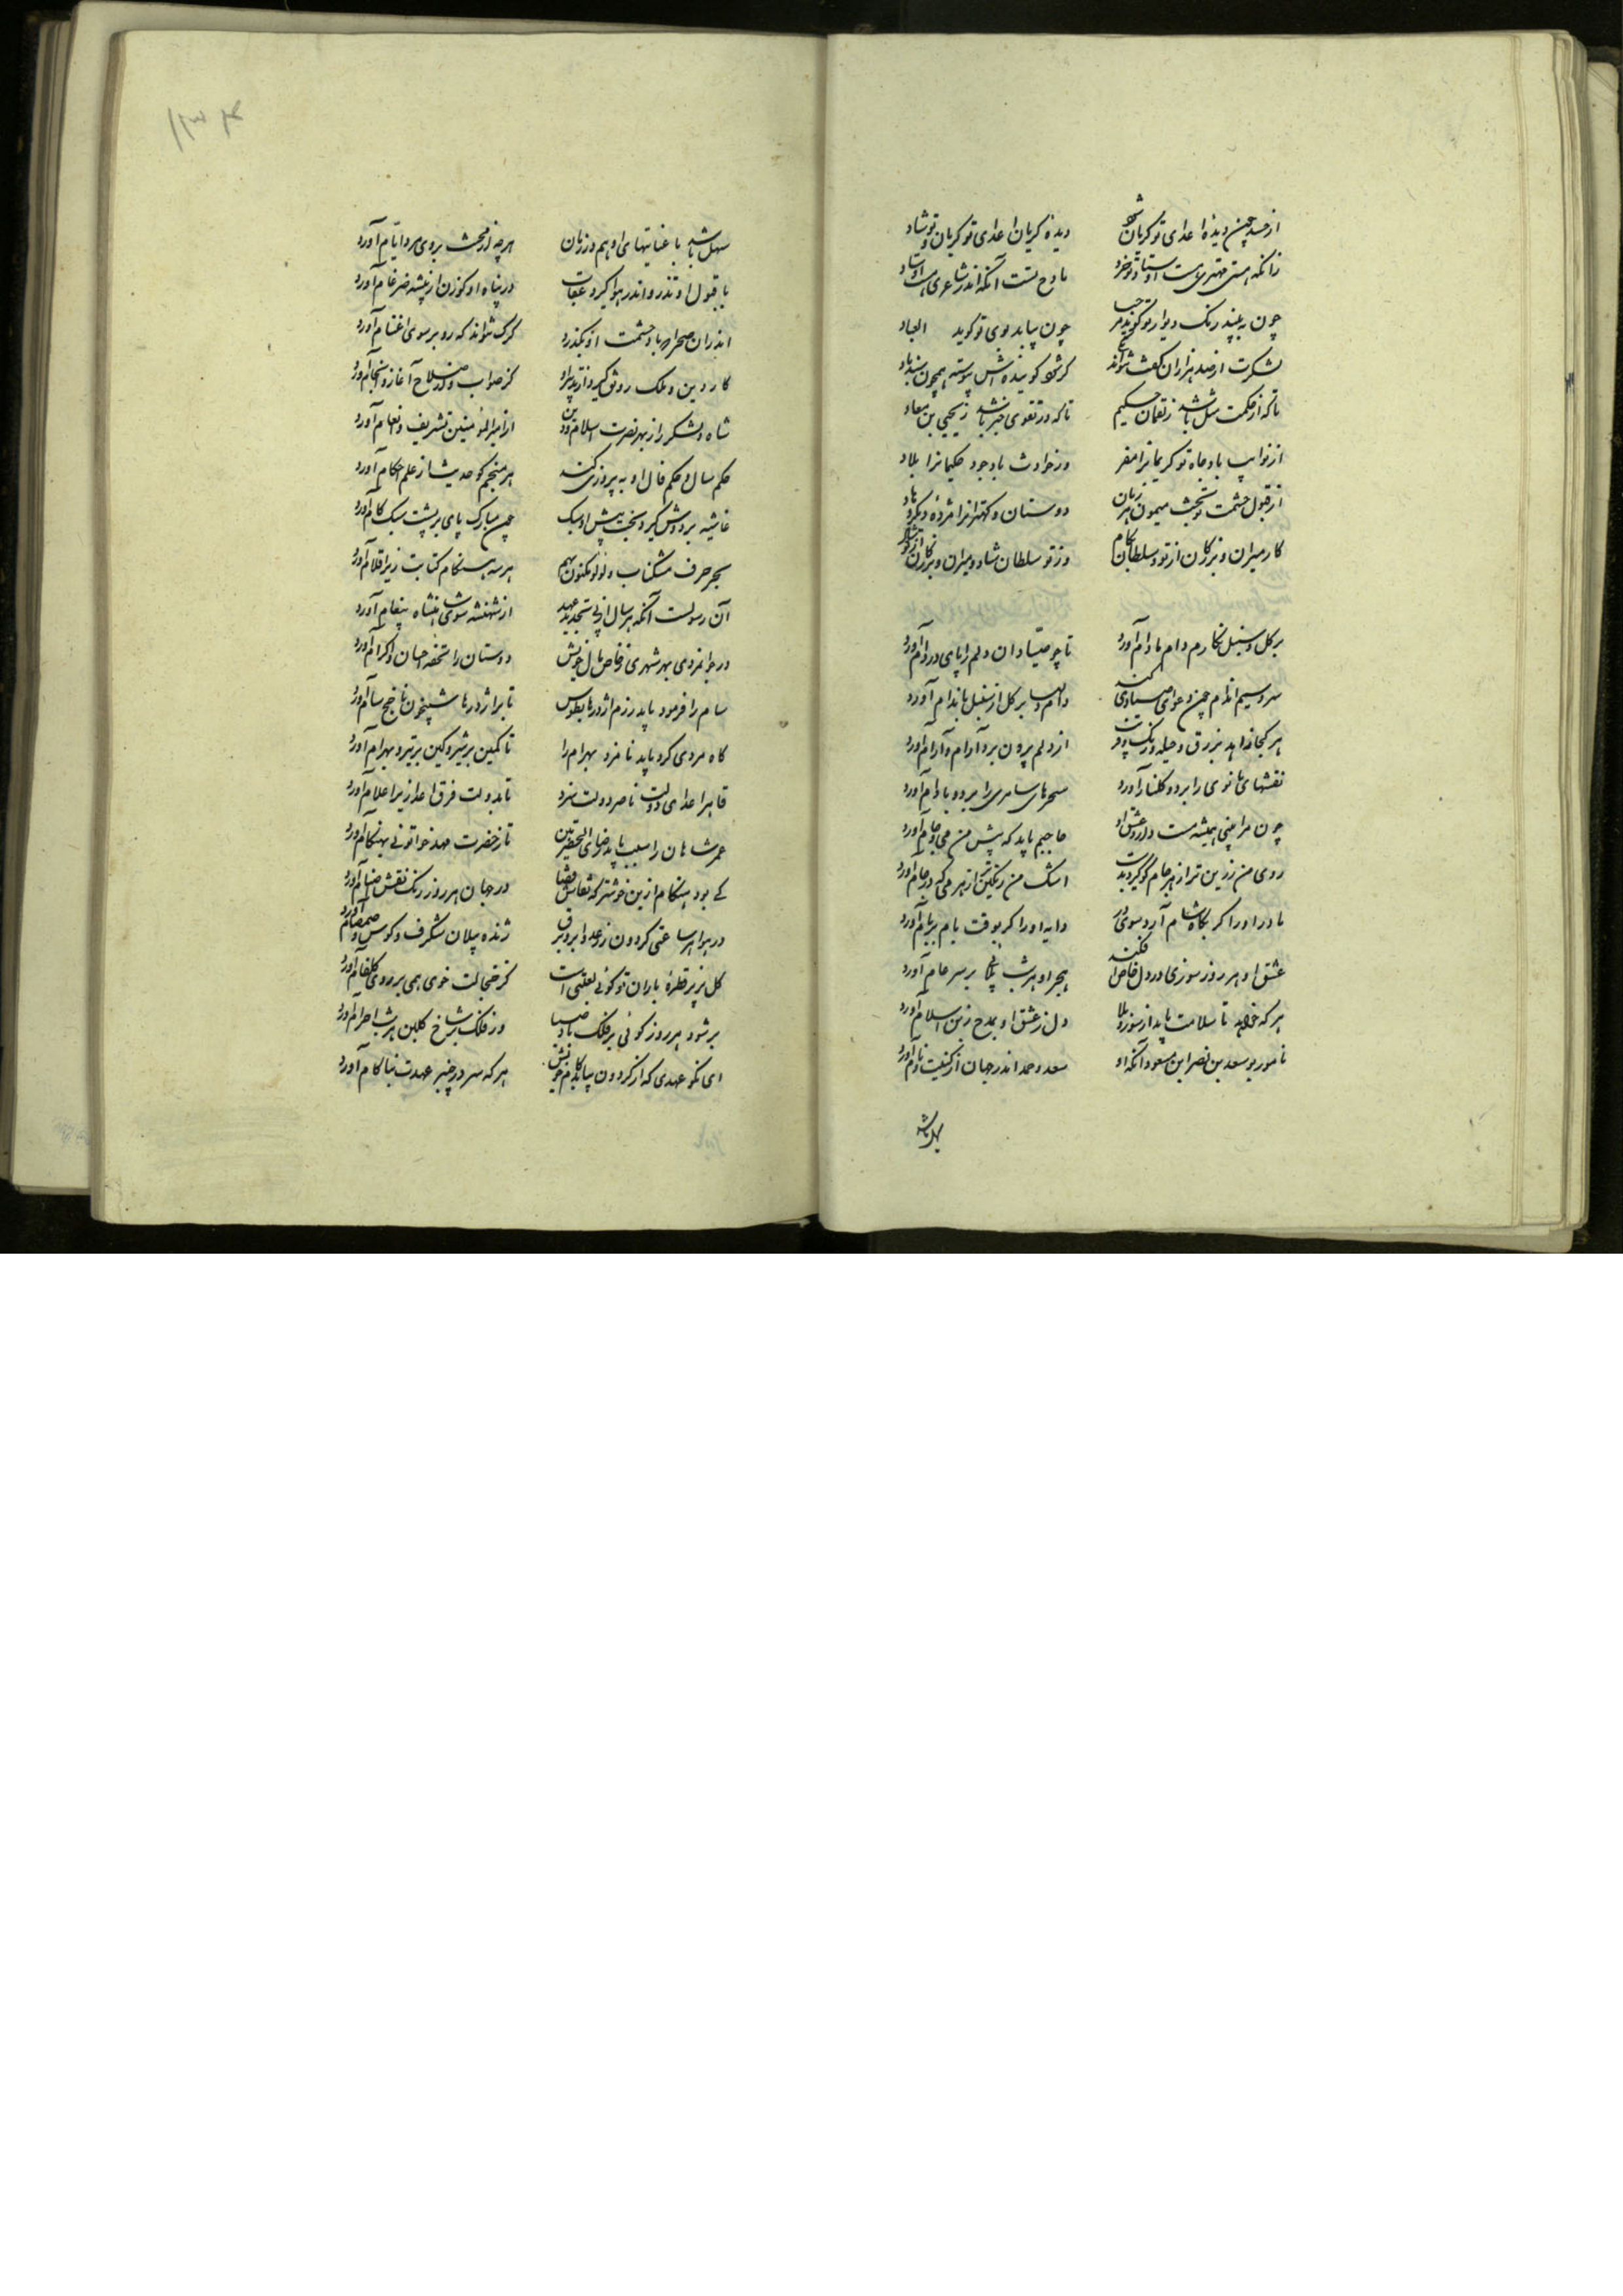 از حسد چون دیدهٔ اعدای تو گریان شود دیده گریان اعدای تو گریان و تو شاد
زانکه هستی مهتری اوستاد و خرد مادح تست آنکه اندر شاعری هست اوستاد
چون به بیند رنک دیوار تو گوید مرحبا چون بیابد بوی تو گوید العباد
شکرت ار صد هزاران گفت نتواند کر شود گوینده اش پیوسته همچون سندباد
تا که از حکمت مثل باشد ز لقمان حکیم تا که در تقوی خبر باشد ز یحیی بن معاد
از نوایب باد جاه تو کریمانرا مفر وز حوادث باد جود حکیمانرا ملاد
از قبول حشمت و بخت میمون هر زمان دوستان و کهترانرا مژدهٔ دیگر دهاد
کار میران و بزرکان از تو و سلطان بکام وز تو سلطان شاد و میران و بزرکان
بر کل و سنبل نکارم دام بادام آورد تا چو صیادان دلم را پای در دام آورد
سرو سیم اندام چون دعوی صیادی کند دام دلها بر کل از سنبل باندام آورد
هر کجا خواهد بزرق و حیله و رنک از دلم بیرون برد آرام و آرام آورد
نقشهای مانوی را بر دو گلنار آورد سحرهای سامری را بر دو بادام آورد
چون مرا بینی همیشه مست دلدار و عشق او حاجبم باید که پیش من می و جام آورد
روی من زرین تر از هر جام کو گیرد بدست اشک من رنکین تر از هر می که در جام آورد
مادر او را اکر بکاه شام آرد سوی در دایه او را اکر بوقت بام بر بام آورد
عشق او هر روز سوزی در دل خاص افکند هجر او هر شب بلائی بر سر عام آورد
هر که خواهد تا سلامت یابد از سوز و بلا دل ز عشق او بمدح زین اسلام آورد
نامور بوسعد بن نصر ابن مسعود آنکه او سعد و حمد اندر جهان از کنیت و نام آورد
سهل باشد
سهل باشد با عنایتهای او هم در زمان هر چه از محنت بروی مرد ایام آورد
با قبول او تذرو اندر هوا گیرد عقاب در پناه او کوزن از بیشه ضرغام آورد
اندران صحرا که باد حشمت او بگذرد کرک نتواند که رو بر سوی اغنام آورد
کار دین و ملک رونق گیرد از تدبیر او کز صواب و صلاح آغاز و انجام آورد
شاه و لشکر را ز بهر نصرت اسلام و دین از امیرالمؤمنین تشریف و انعام آورد
حکم سال و حکم فال او به پیروزی کند هر منجم کو حدیث از علم احکام آورد
غاشیه بر دوش گیرد بخت پیش او سبک چون مبارک پای بر پشت سبک کام آورد
بحر ژرف مشکناب و لولو مکنون بهم هر سه هنکام کتابت زیر اقلام آورد
آن رسولست آنکه هر سال از پی تجدید عهد از شهنشه سوی شاهنشاه پیغام آورد
در جوانمردی بهر شهری ز خاص مال خویش دوستان را تحفه احسان و اکرام آورد
سام را فرمود باید رزم اژدرها بطوس تا بر اژدرها شبیخون ناجخ سام آورد
کاه مردی کرد باید نامزد بهرام را تا کمین بر شیر و کین بر تیر و بهرام آورد
قاهر اعدای دولت ناصر دولت سزد تا بدولت فرق اعدا زیر اعلام آورد
عمر شاهان را سبب باید رضای تا ز حضرت مهد خواتونی بهنکام آورد
کی بود هنکام ازین خوشتر که نقاش قضا در جهان هر روز رنک نقش اصنام آورد
در هوا هر ساعتی گردون ز رعد و ابر و برق ژنده پیلان شگرف و کوس و صمصام آورد
کل بزیر قطرهٔ باران تو کوئی لعبتی است کز خجالت خوی همی بر روی گلفام آورد
بر شود هر روز گوئی بر فلک باد صبا وز فلک بر شاخ گلبن هر شب اجرام آورد
ای نکو عهدی که از گردون بیابد کام خویش هر که سر در چنبر عهدت بناکام آورد